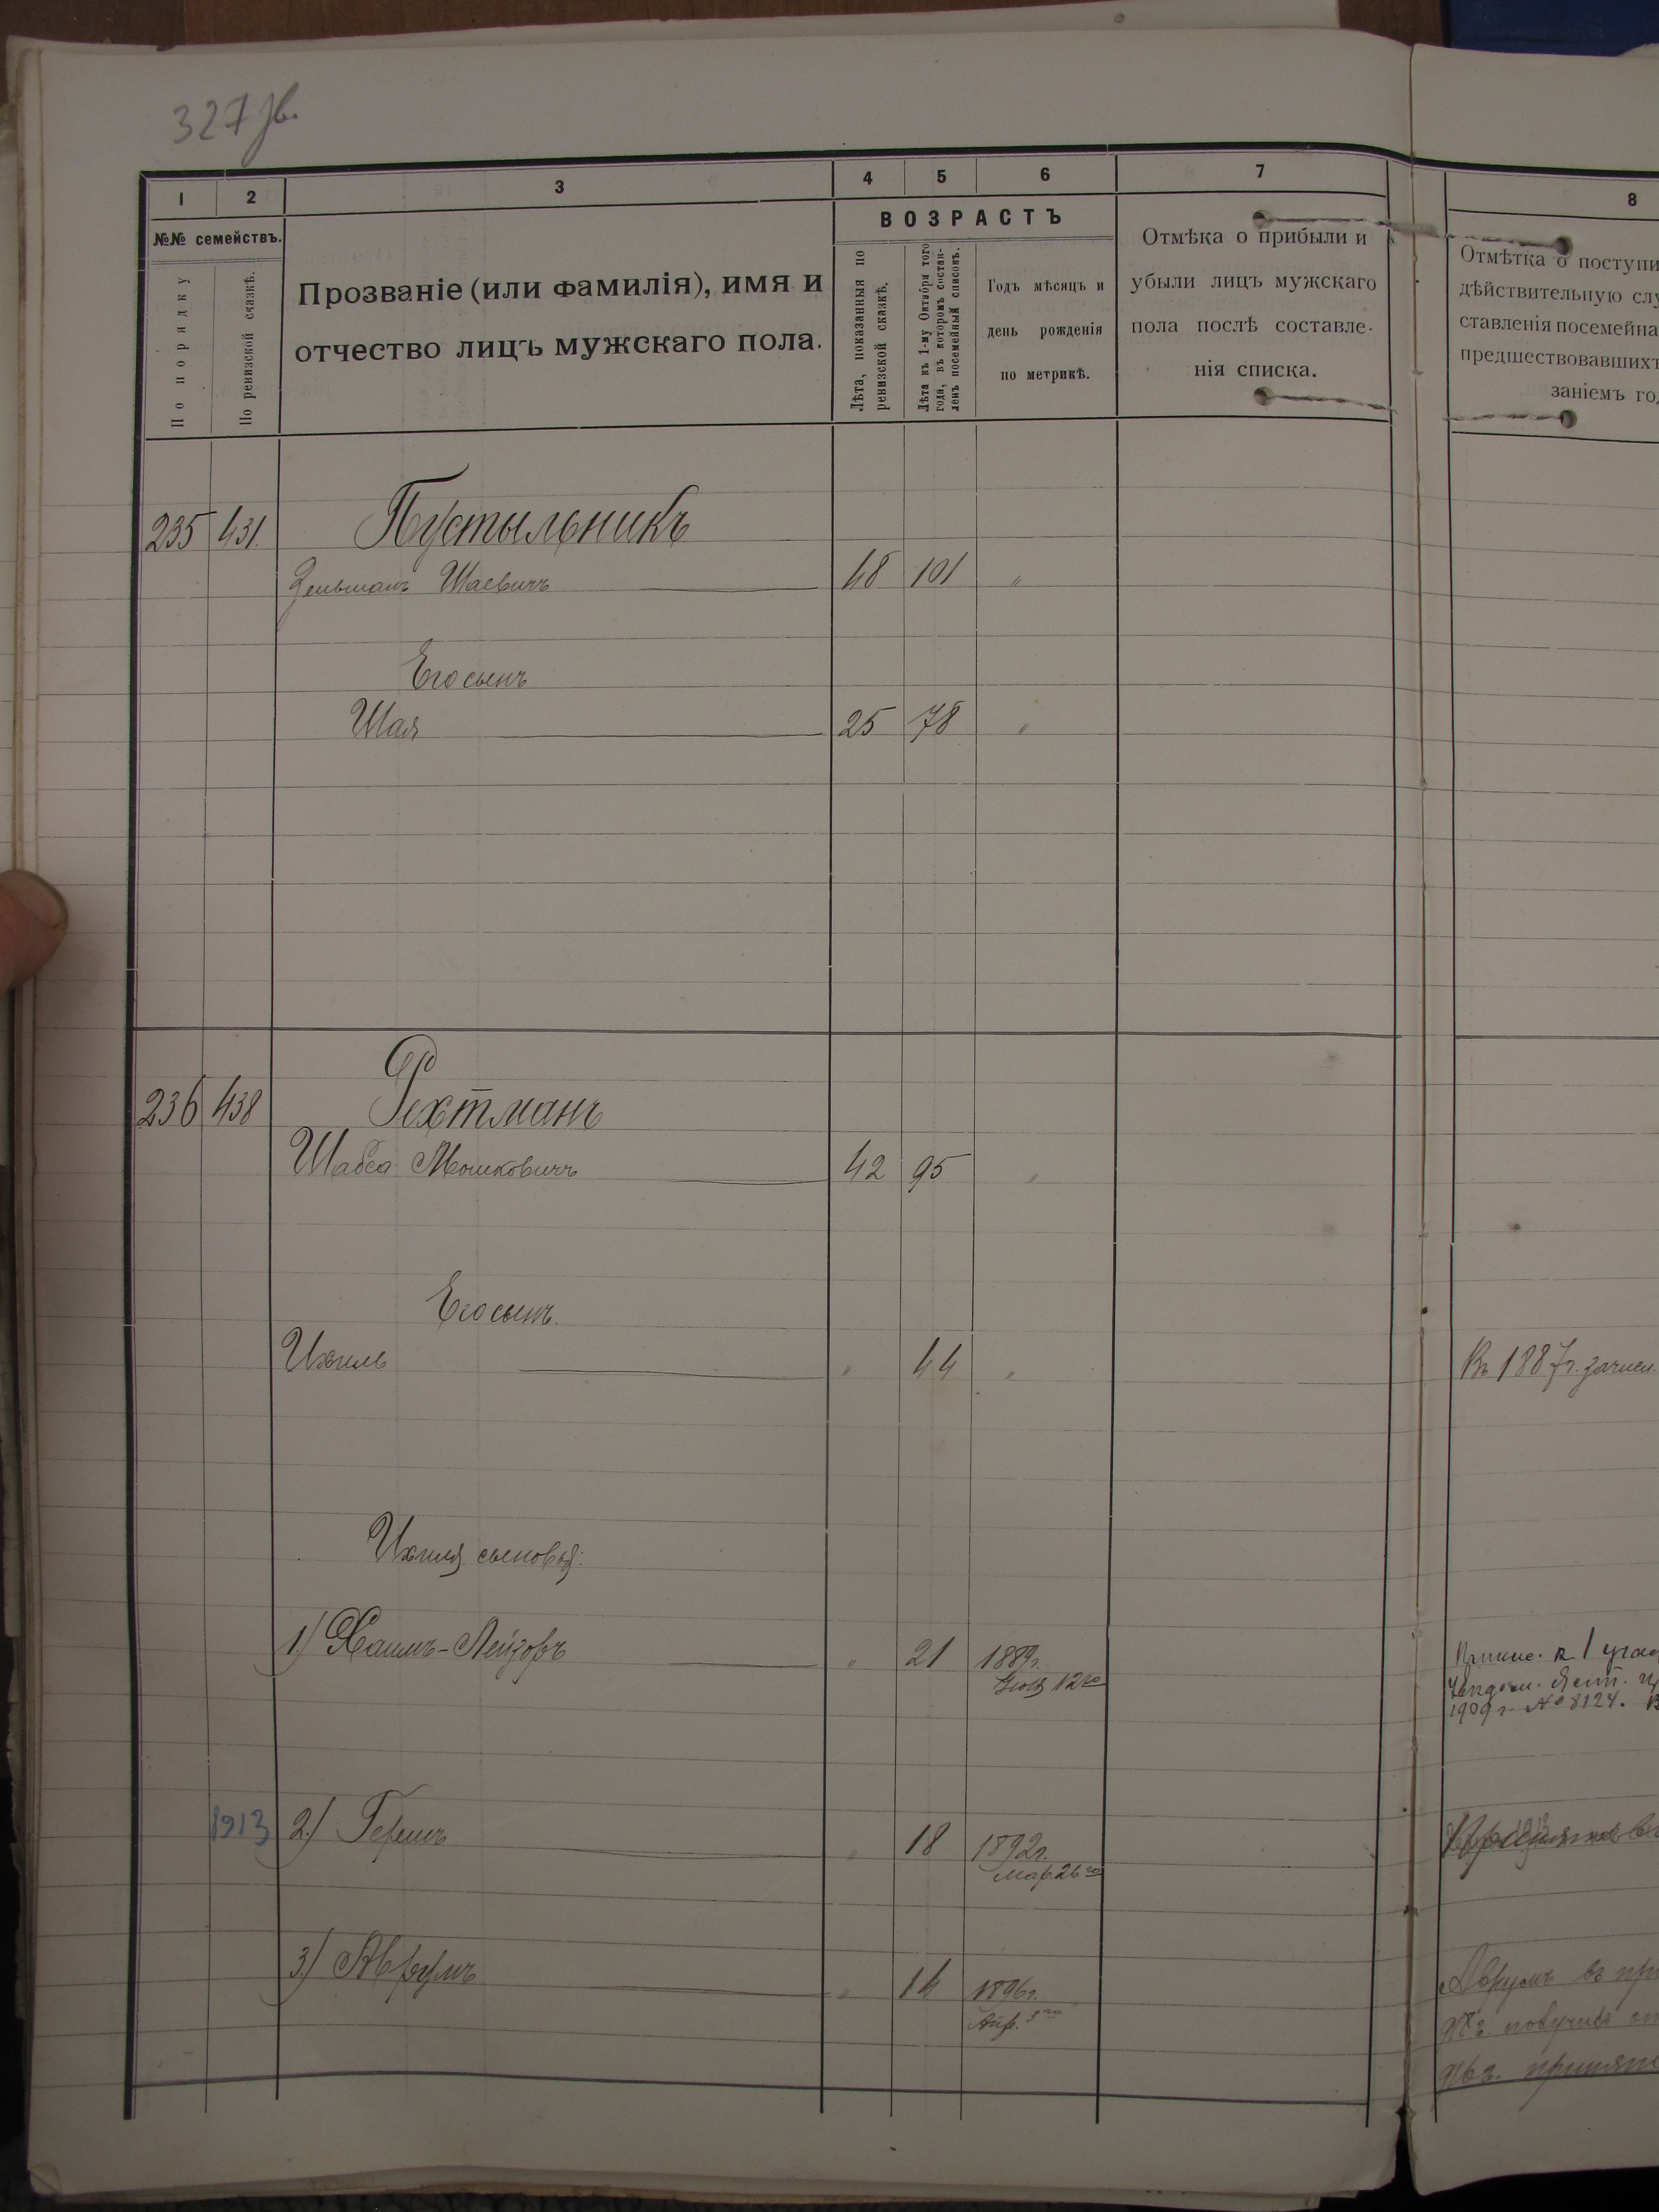 327 зв.
1 2 3 4 5 6 7 8
№№ семействъ.
По порядку
По ревизской сказкѣ.
Прозваніе (или фамилія), имя и
отчество лицъ мужскаго пола.
ВОЗРАСТЪ
Лѣта, показанныя по
ревизской сказкѣ.
Лѣта къ 1-му Октября того
года, въ которомъ состав-
ленъ посемейный списокъ.
Годъ мѣсяцъ и
день рожденія
по метрикѣ.
Отмѣка о прибыли и
убыли лицъ мужскаго
пола послѣ составле-
нія списка.
Отмѣтка о поступи
дѣйствительную слу
ставленія посемейна
предшествовавшихъ
заніемъ го
235 431. Пустыльникъ
Зельманъ Шаевичъ 48 101 "
Его сынъ
Шая 25 78 "
236 438 Рехтманъ
Шабса Мошковичъ 42 95 "
Его сынъ.
Ихиль " 44 " Въ 1887 г. зачисл.
Ихиля сыновья:
1.) Хаимъ-Лейзоръ " 21 1889 г.
12го
1909 г. № 8124.
1913 2.) Гершъ " 18 1892 г.
Мар. 26го
3.) Аврумъ " 14 1896 г.
Апр. 3го
Аврумъ въ